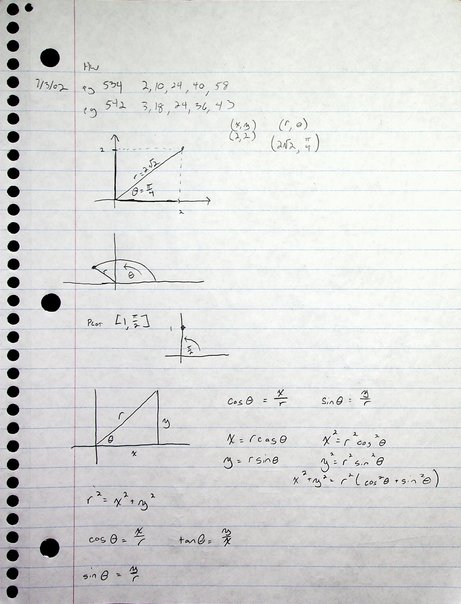 HW
7/3/02 pg 534 2, 10, 24, 40, 58
pg 542 3, 18, 24, 36, 47
(x, y) (r, θ)
(2, 2) (2√2, π/4)
2
r = 2√2
θ = π/4
2
r θ
PLOT [1, π/2]
1
π/2
r
θ
y
x
cos θ = x/r sin θ = y/r
x = r cos θ x² = r² cos² θ
y = r sin θ y² = r² sin² θ
x² + y² = r² (cos² θ + sin² θ)
r² = x² + y²
cos θ = x/r tan θ = y/x
sin θ = y/r